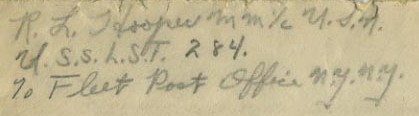 R. L. Hooper MM 1/c U.S.N.
U.S.S. L.S.T. 284.
℅ Fleet Post Office N.Y. N.Y.